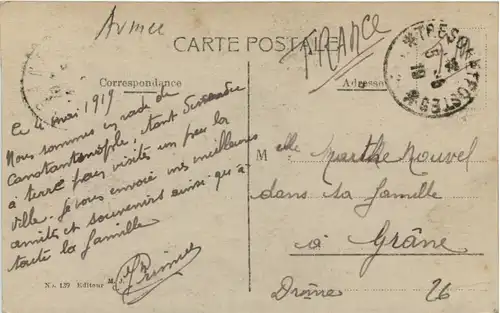 Armée
CARTE POSTALE
FRANCE
TRESOR ET POSTES
Correspondance
Adresse
Le 4 mai 1919
Nous sommes en rade de
Constantinople, tant descendre
à terre pour visiter un peu la
ville. Je vous envoie mes meilleures
amitiés et souvenirs ainsi qu'à
toute la famille
Melle Marthe Nouvel
dans sa famille
à Grâne
Drôme 26
No. 139 Editeur M. J.